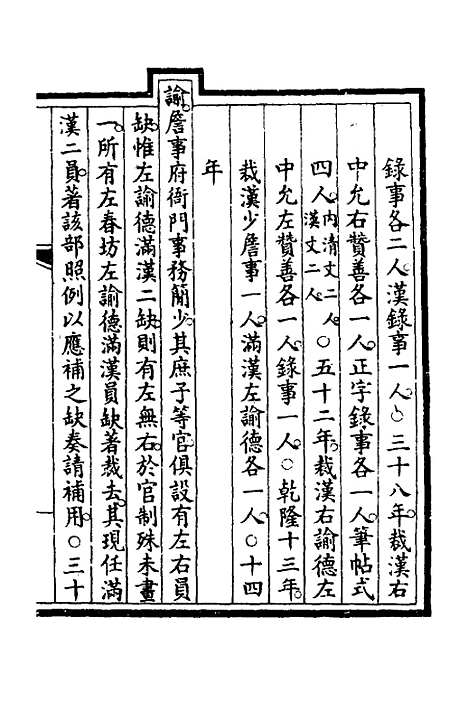 錄事各二人漢錄事一人○三十八年裁漢右
中允右贊善各一人正字錄事各一人筆帖式
四人內清文二人漢文二人○五十二年裁漢右諭德左
中允左贊善各一人錄事一人○乾隆十三年
裁漢少詹事一人滿漢左諭德各一人○十四
年
諭詹事府衙門事務簡少其庶子等官俱設有左右員
缺惟左諭德滿漢二缺則有左無右於官制殊未畫
一所有左春坊左諭德滿漢員缺著裁去其現任滿
漢二員著該部照例以應補之缺奏請補用○三十